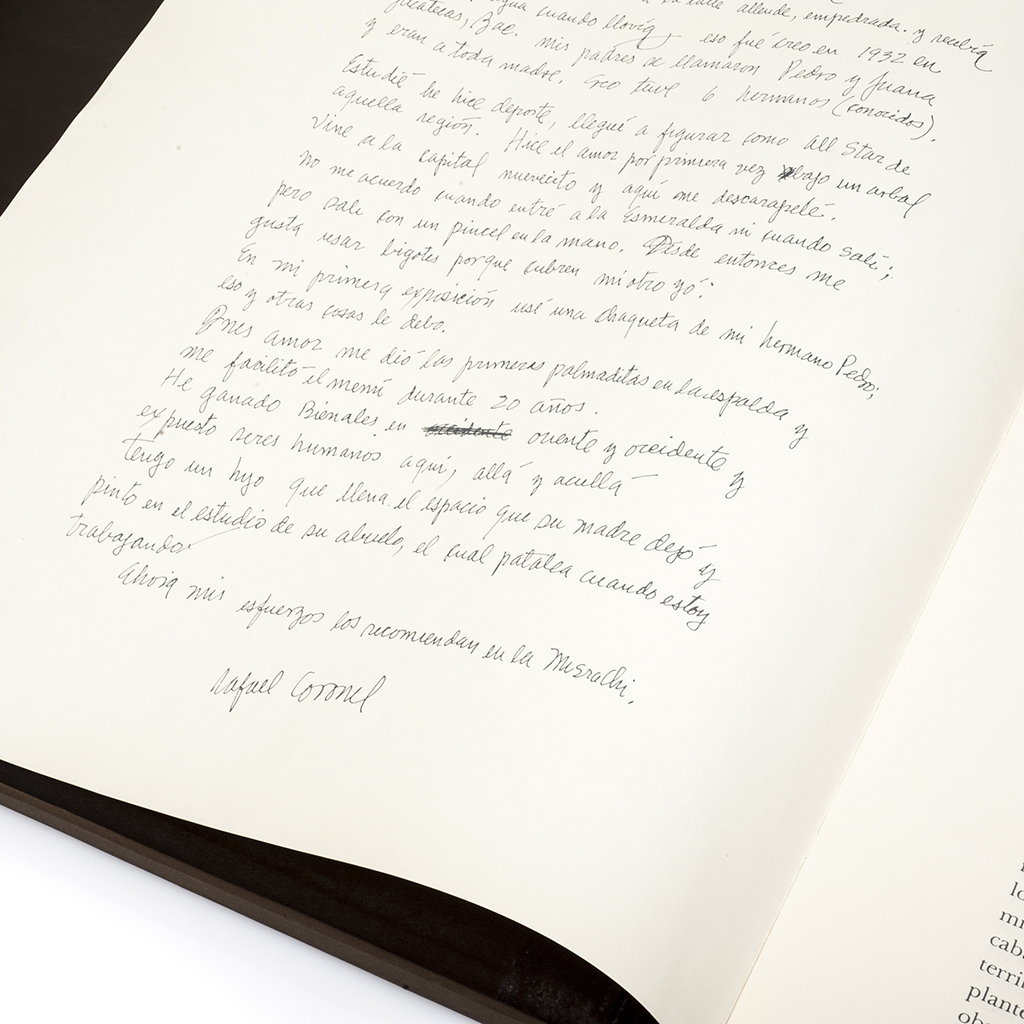 la calle allende, empedrada. y recibía
agua cuando llovía, eso fué creo en 1932 en
Zacatecas, Zac. mis padres se llamaron Pedro y Juana
y eran a toda madre. Creo tuve 6 hermanos (conocidos).
Estudié he hice deporte, llegué a figurar como all Star de
aquella región. Hice el amor por primera vez bajo un arbol
Vine a la capital nuevecito y aquí me descarapelé.
no me acuerdo cuando entré a la Esmeralda ni cuando salí;
pero salí con un pincel en la mano. Desde entonces me
gusta usar bigotes porque cubren mi otro yó.
En mi primera exposición usé una chaqueta de mi hermano Pedro;
eso y otras cosas le debo.
Ines amor me dió las primeras palmaditas en la espalda y
me facilitó el menú durante 20 años.
He ganado Bienales en oriente y occidente y
expuesto seres humanos aquí, allá y acullá
tengo un hijo que llena el espacio que su madre dejó y
pinto en el estudio de su abuelo, el cual patalea cuando estoy
trabajando.
Ahora mis esfuerzos los recomiendan en la Misrachi.
Rafael Coronel
lo
cab
terri
plante
ob